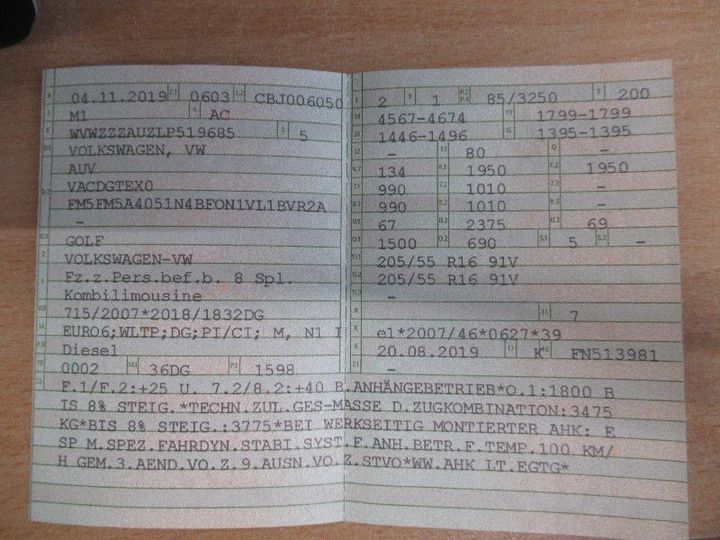 04.11.2019 0603 CBJ006050
M1 AC
WVWZZZAUZLP519685 5
VOLKSWAGEN, VW
AUV
VACDGTEX0
FM5FM5A4051N4BFON1VL1BVR2A
-
GOLF
VOLKSWAGEN-VW
Fz.z.Pers.bef.b. 8 Spl.
Kombilimousine
715/2007*2018/1832DG
EURO6;WLTP;DG;PI/CI; M, N1 I
Diesel
0002 36DG 1598
2 1 85/3250 200
4567-4674 1799-1799
1446-1496 1395-1395
- 80 -
134 1950 1950
990 1010 -
990 1010 -
67 2375 69
1500 690 5 -
205/55 R16 91V
205/55 R16 91V
-
7
e1*2007/46*0627*39
20.08.2019 K FN513981
-
F.1/F.2:+25 U. 7.2/8.2:+40 B.ANHÄNGEBETRIEB*O.1:1800 B
IS 8% STEIG.*TECHN.ZUL.GES-MASSE D.ZUGKOMBINATION:3475
KG*BIS 8% STEIG.:3775*BEI WERKSEITIG MONTIERTER AHK: E
SP M.SPEZ.FAHRDYN.STABI.SYST.F.ANH.BETR.F.TEMP.100 KM/
H GEM.3.AEND.VO.Z.9.AUSN.VO.Z.STVO*WW.AHK LT.EGTG*